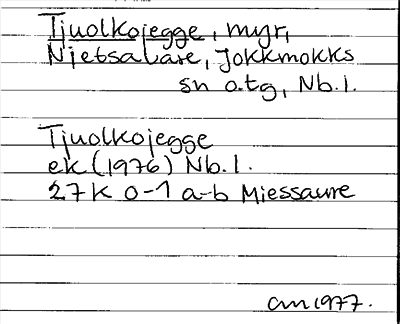 Tjuolkojegge, myr,
Njetsavare, Jokkmokks
sn o.tg, Nb.l.
Tjuolkojegge
ek (1976) Nb.l.
27K 0-1 a-b Miessaure
am 1977.